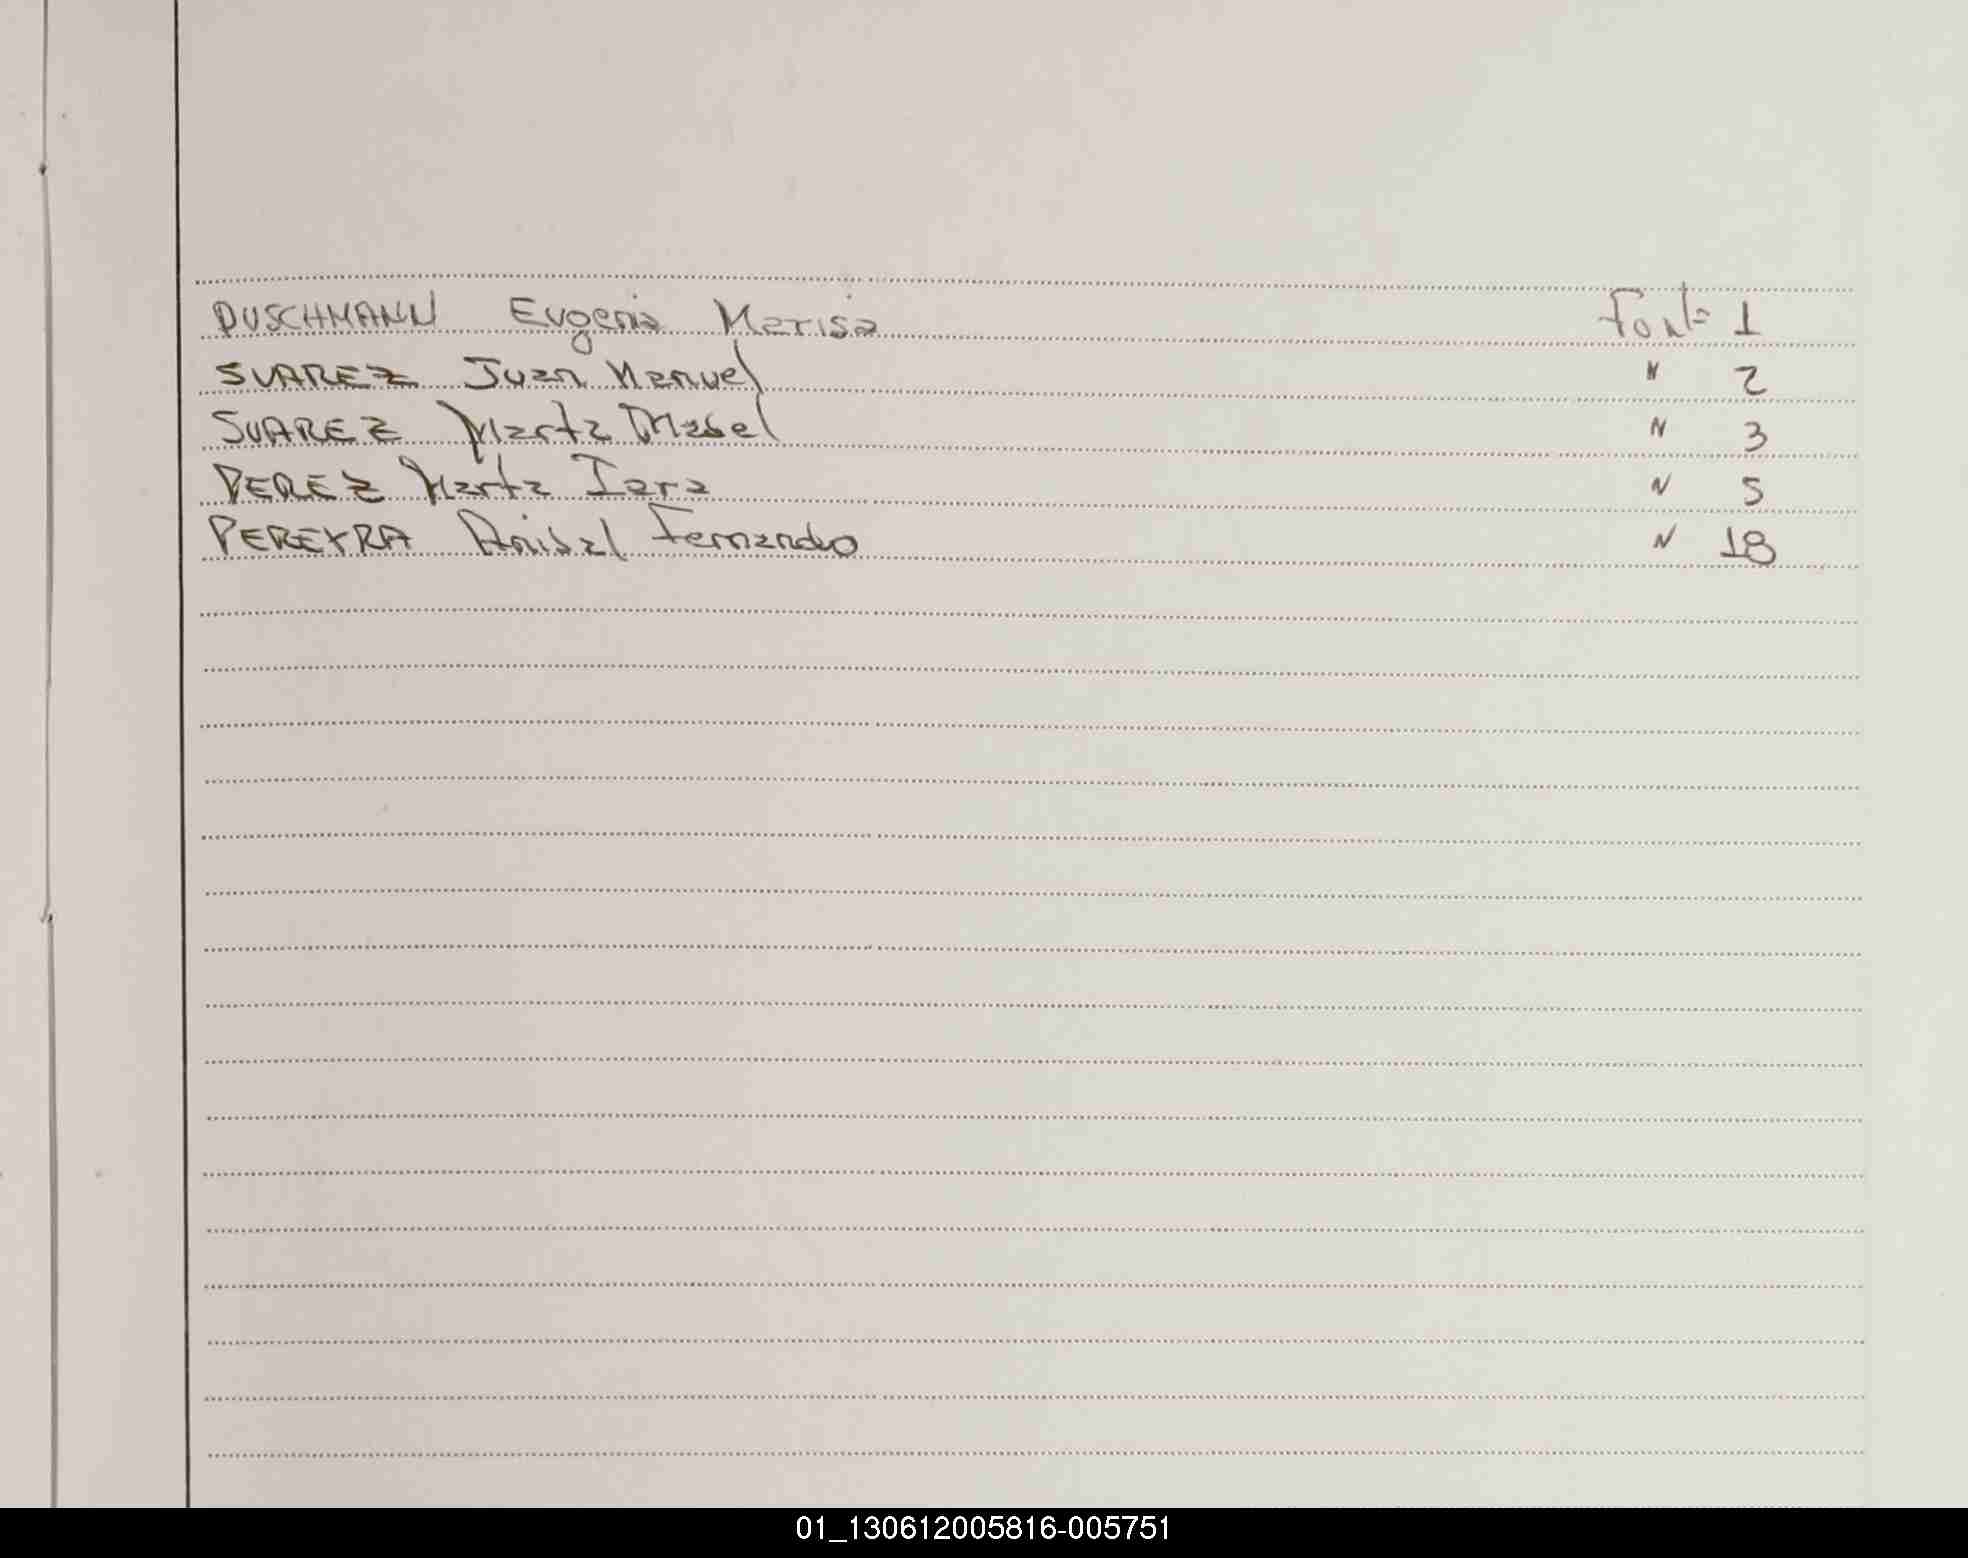 DUSCHMANN Eugenia Marisa Font= 1
SUAREZ Juan Manuel " 2
SUAREZ Marta Mabel " 3
PEREZ Marta Iara " 5
PEREYRA Anibal Fernando " 18
01_130612005816-005751